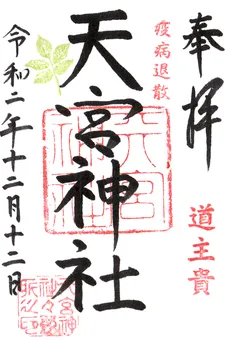 奉拝
道主貴
疫病退散
天宮神社
令和二年十二月十二日